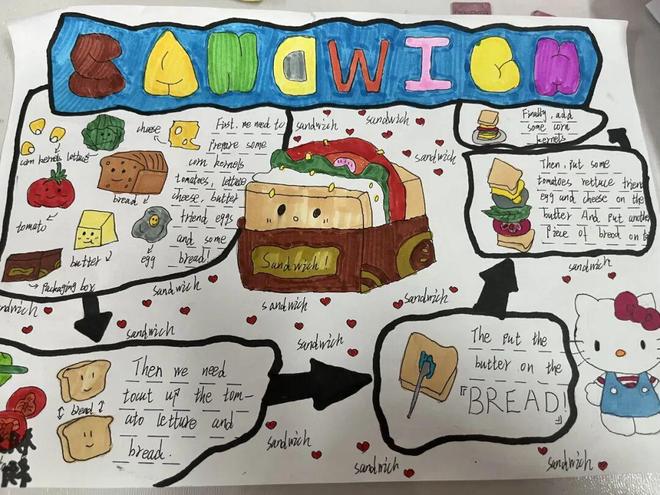 SANDWICH
corn kernels
lettuce
cheese
tomato
bread
butter
egg
packaging box
First, we need to
prepare some
corn kernels
tomatoes, lettuce
cheese, butter
friend eggs
and some
bread!
sandwich
sandwich
sandwich
sandwich
sandwich
Sandwich!
Finally, add
some corn
kernels
Then, put some
tomatoes rettuce friend
egg and cheese on the
butter And put anoth
piece of bread on
sandwich
sandwich
sandwich
sandwich
sandwich
sandwich
sandwich
sandwich
bread
Then we need
tocut up the tom-
ato letture and
bread.
The put the
butter on the
『BREAD!』
sandwich
sandwich
sandwich